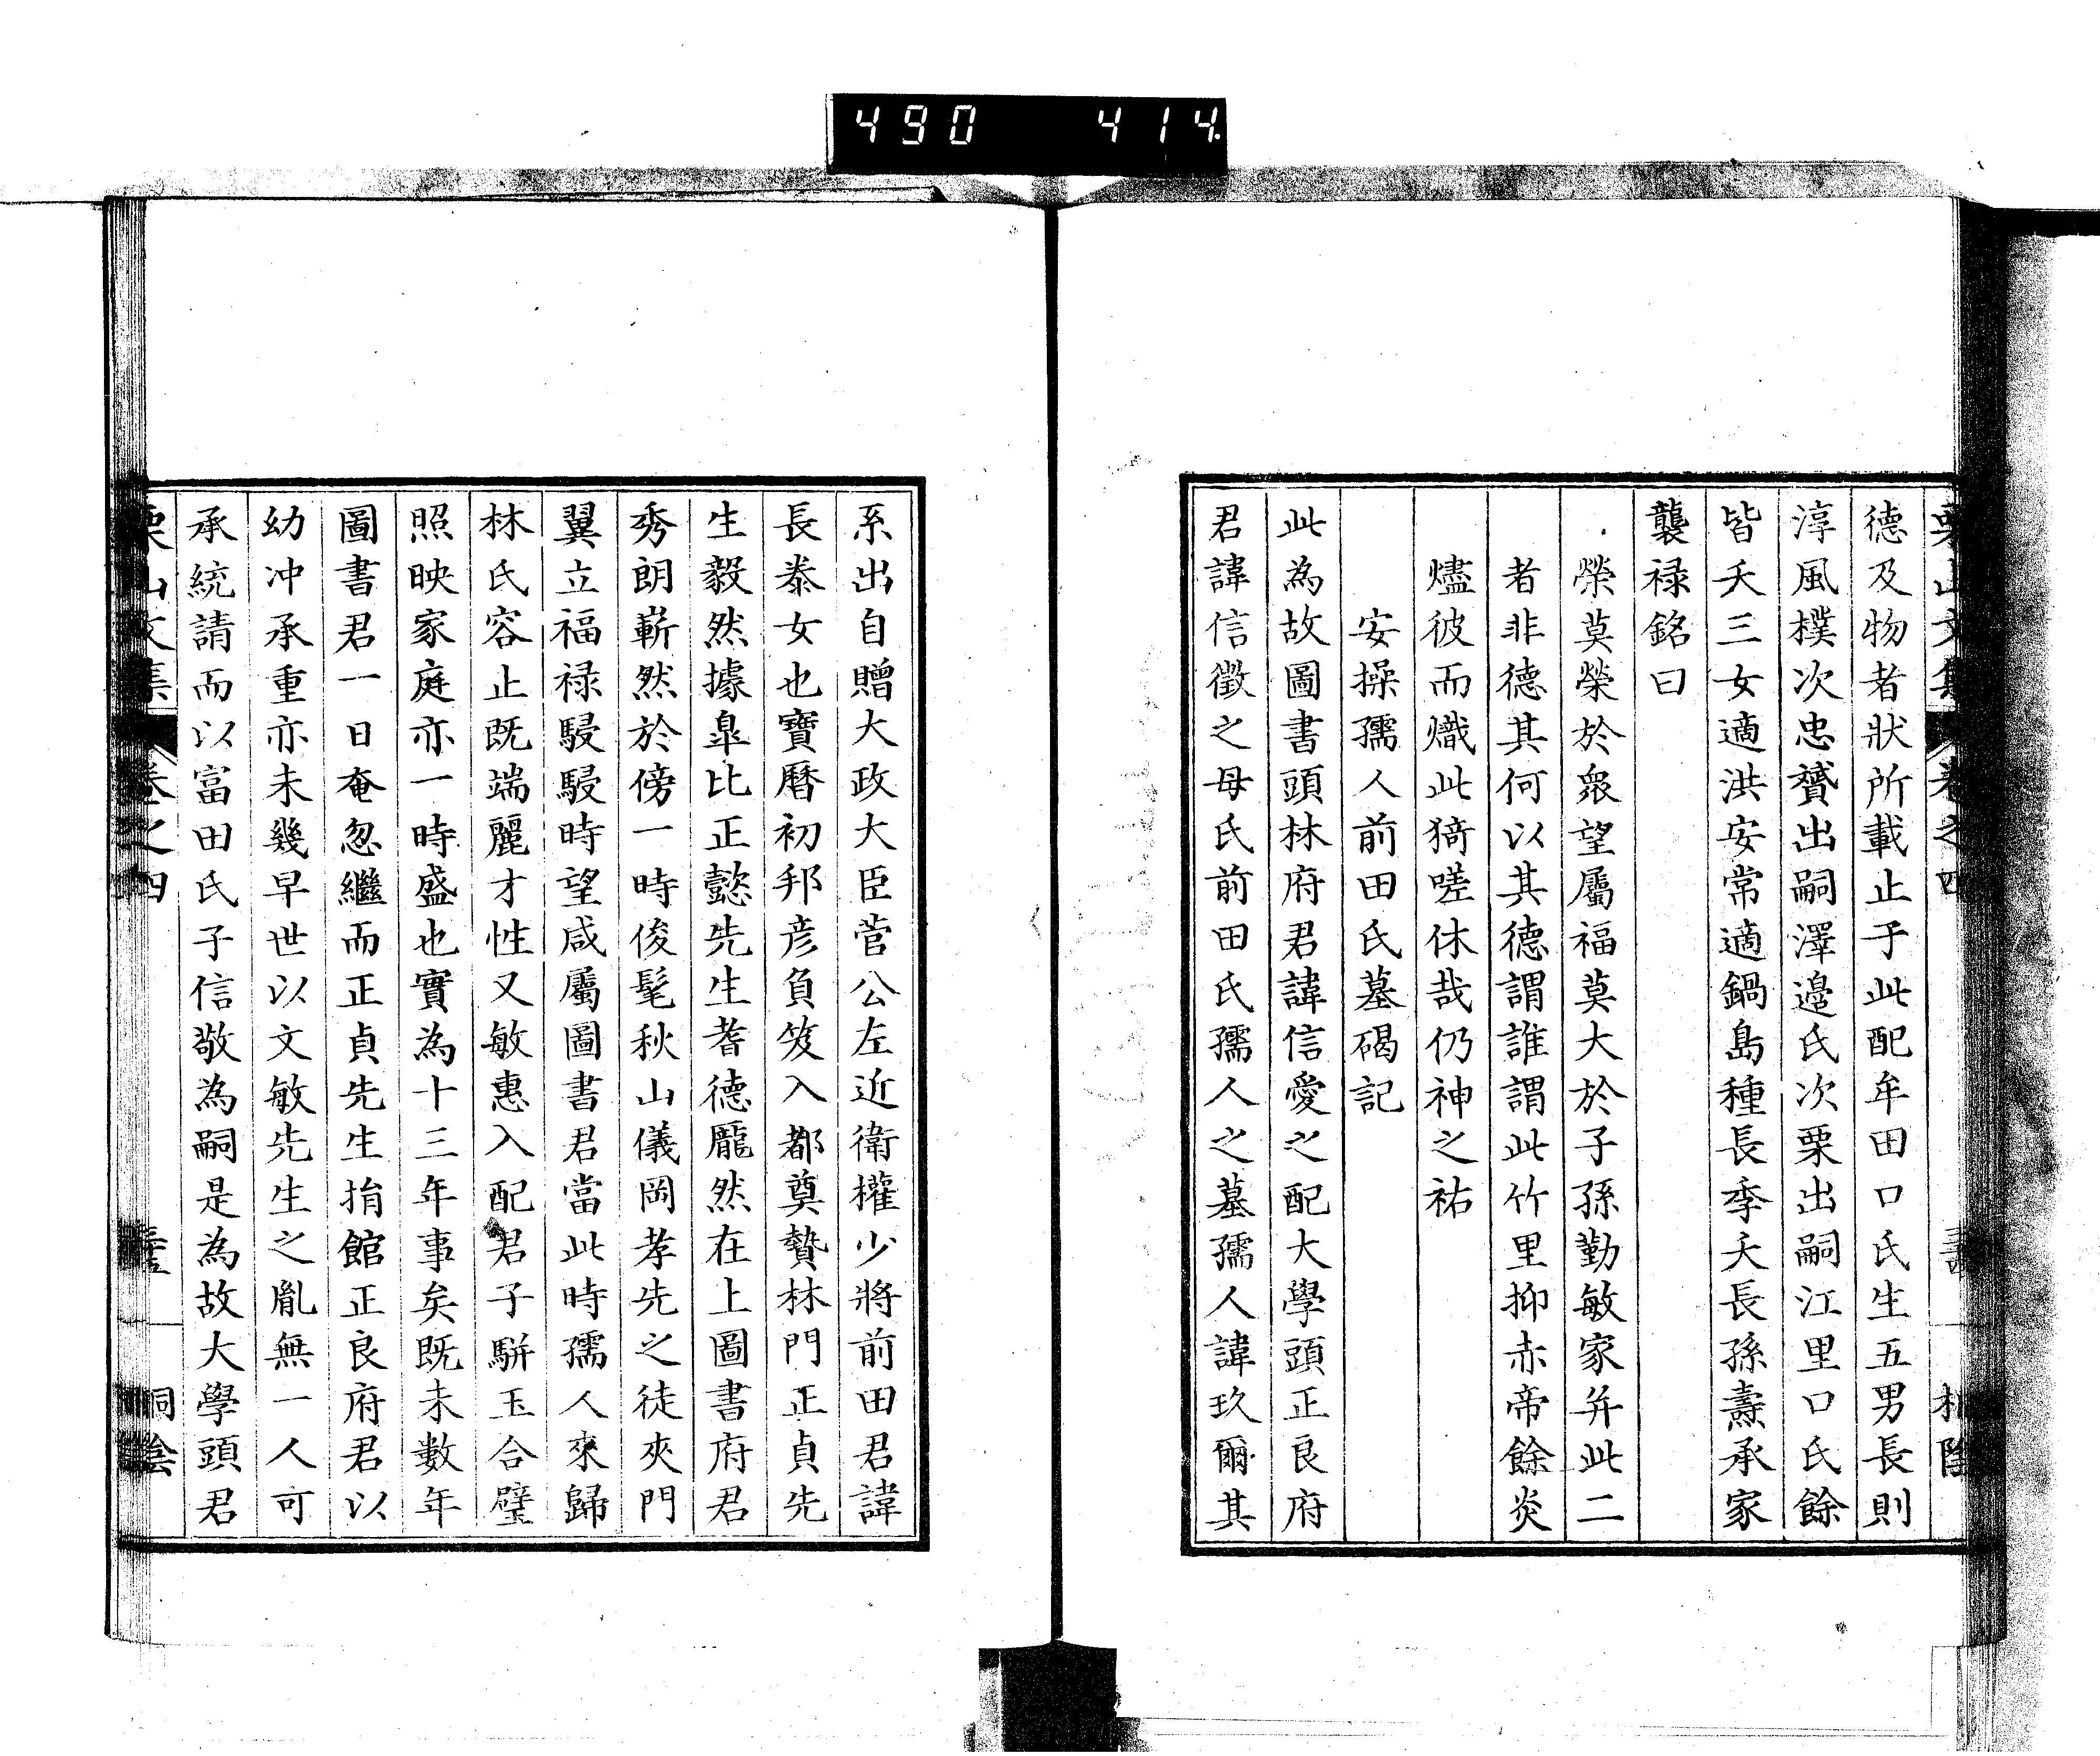 490 414
德及物者狀所載止于此配牟田口氏生五男長則
淳風樸次忠贇出嗣澤邉氏次栗出嗣江里口氏餘
皆夭三女適洪安常適鍋島種長季夭長孫壽承家
襲祿銘曰
榮莫榮於衆望屬福莫大於子孫勤敏家并此二
者非德其何以其德謂誰謂此竹里抑赤帝餘炎
燼彼而熾此猗嗟休哉仍神之祐
安操孺人前田氏墓碣記
此為故圖書頭林府君諱信愛之配大學頭正良府
君諱信徵之母氏前田氏孺人之墓孺人諱玖爾其
系出自贈大政大臣菅公左近衛權少將前田君諱
長泰女也寶曆初邦彦負笈入都奠贄林門正貞先
生毅然據皐比正懿先生耆德龎然在上圖書府君
秀朗嶄然於傍一時俊髦秋山儀岡孝先之徒夾門
翼立福祿駸駸時望咸屬圖書君當此時孺人來歸
林氏容止既端麗才性又敏惠入配君子駢玉合璧
照映家庭亦一時盛也實為十三年事矣既未數年
圖書君一日奄忽繼而正貞先生捐館正良府君以
幼冲承重亦未幾早世以文敏先生之胤無一人可
承統請而以富田氏子信敬為嗣是為故大學頭君
栗山文集 卷之四